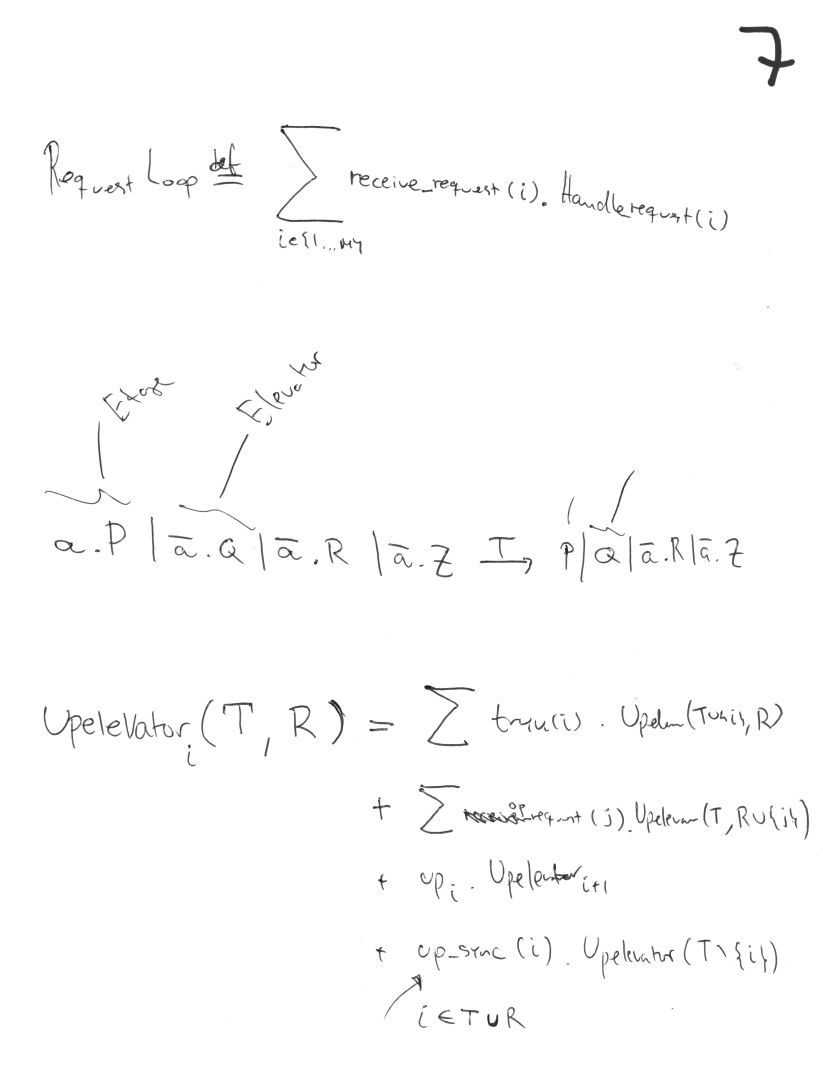 7
Request Loop def= ∑ receive_request(i). Handlerequest(i)
i∈{1...M}
Etage Elevator
a.P | ā.Q | ā.R | ā.Z τ→ P|Q|ā.R|ā.Z
Upelevatorᵢ(T, R) = ∑ (i) . (T∪{i}, R)
+ ∑ up_request (j). Upelevator(T, R∪{j})
+ upᵢ . Upelevatorᵢ₊₁
+ up_sync (i) . Upelevator(T∖{i})
i ∈ T∪R